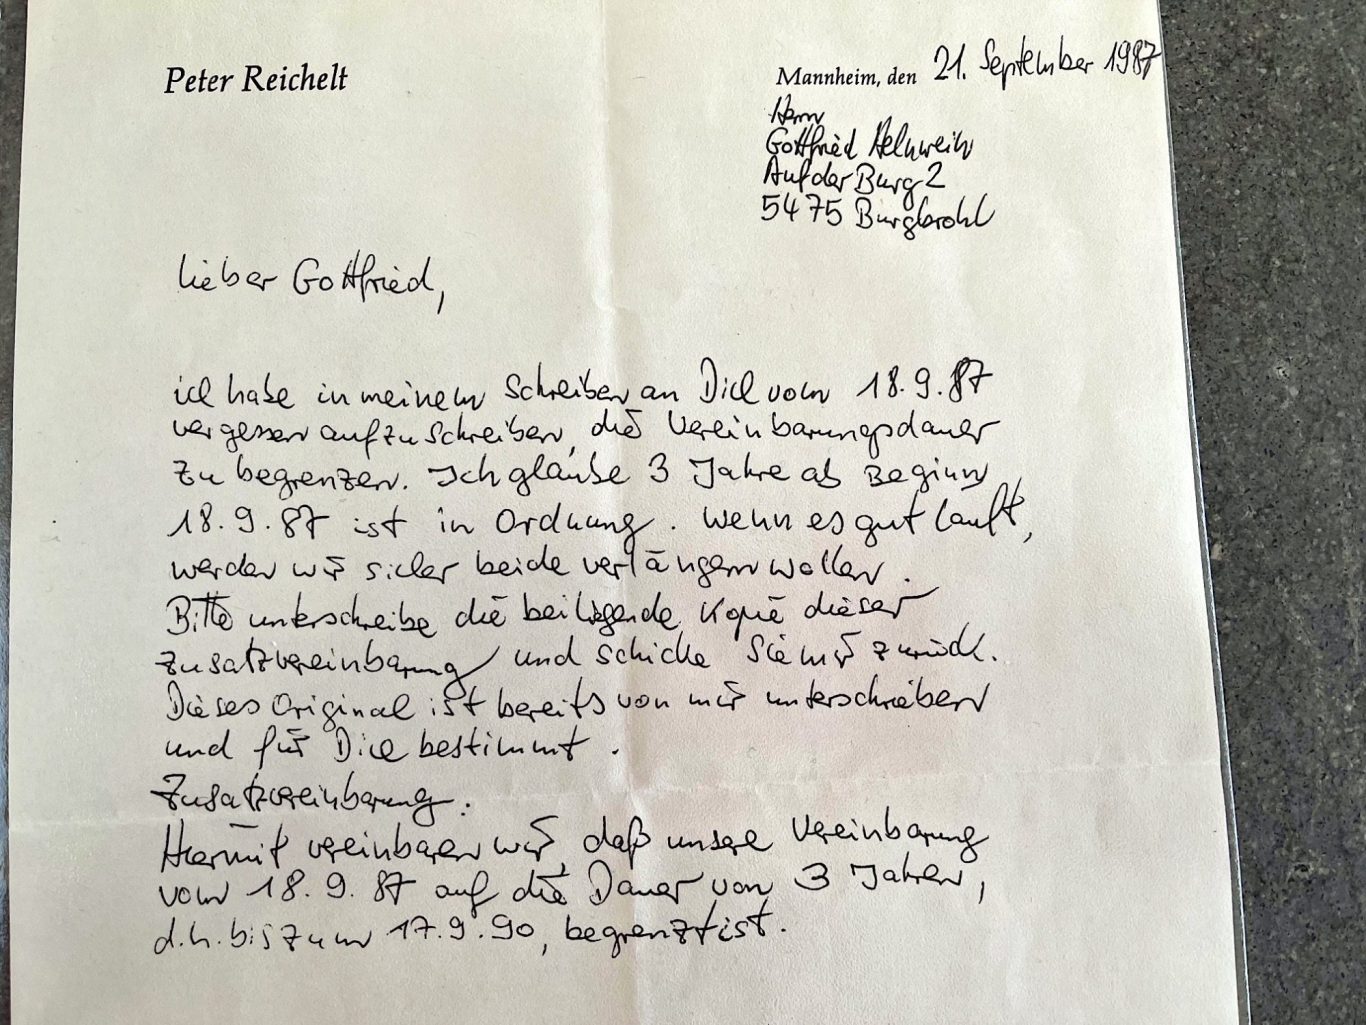 Peter Reichelt
Mannheim, den 21. September 1987
Herrn
Gottfried Helnwein
Auf der Burg 2
5475 Burgbrohl
Lieber Gottfried,
ich habe in meinem Schreiben an Dich vom 18.9.87
vergessen aufzuschreiben, die Vereinbarungsdauer
zu begrenzen. Ich glaube 3 Jahre ab Beginn
18.9.87 ist in Ordnung. Wenn es gut läuft,
werden wir sicher beide verlängern wollen.
Bitte unterschreibe die beiliegende Kopie dieser
Zusatzvereinbarung und schicke sie mir zurück.
Dieses Original ist bereits von mir unterschrieben
und für Dich bestimmt.
Zusatzvereinbarung:
Hiermit vereinbaren wir, daß unsere Vereinbarung
vom 18.9.87 auf die Dauer von 3 Jahren,
d.h. bis zum 17.9.90, begrenzt ist.